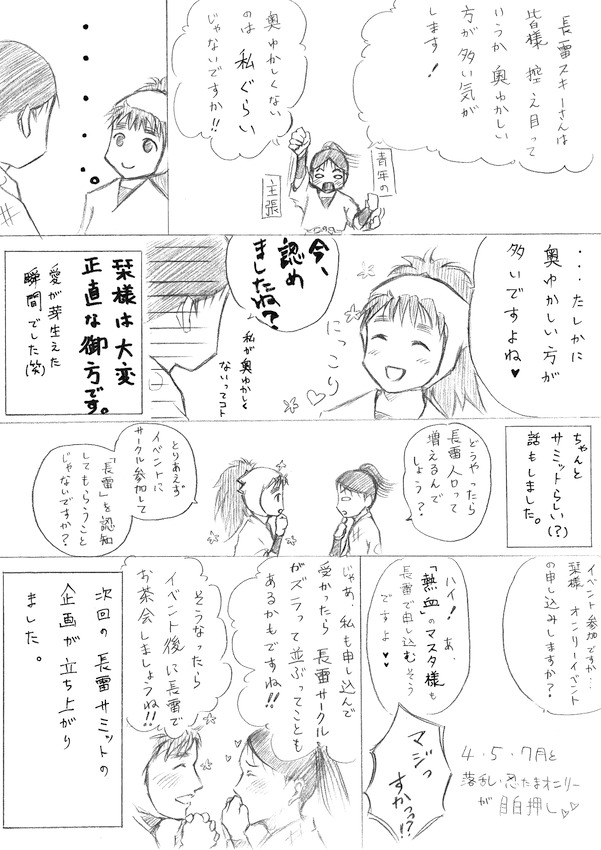 長雷スキーさんは
皆様 控え目って
いうか 奥ゆかしい
方が多い気が
します！
奥ゆかしくない
のは 私ぐらい
じゃないですか!!
青年の
主張
・・・・・・・
・・・たしかに
奥ゆかしい方が
多いですよね♥
にっこり
今、
認め
ましたね？
私が奥ゆかしく
ないってコト
栞様は大変
正直な御方です。
愛が芽生えた
瞬間でした(笑)
ちゃんと
サミットらしい(？)
話もしました。
どうやったら
長雷人口って
増えるんで
しょう？
とりあえず
イベントに
サークル参加して
「長雷」を認知
してもらうこと
じゃないですか？
イベント参加ですか…
栞様 オンリーイベント
の申し込みしますか？
ハイ！あ、
「熱血」のマスタ様も
長雷で申し込むそう
ですよ♥♥
マジっ
すかっ!?
4・5・7月と
落乱・忍たまオンリー
が
目白押し♡♡
じゃあ、私も申し込んで
受かったら 長雷サークル
がズラって並ぶってことも
あるかもですね!!
そうなったら
イベント後に長雷で
お茶会しましょうね!!
次回の長雷サミットの
企画が立ち上がり
ました。